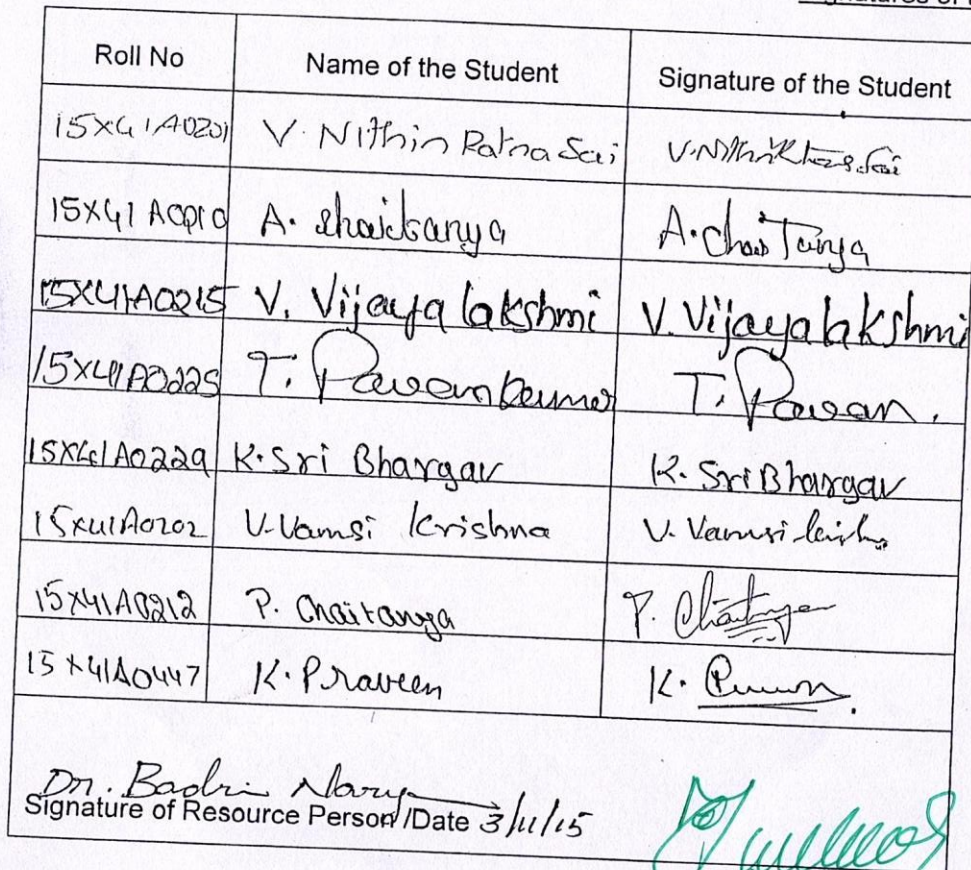 Roll No Name of the Student Signature of the Student
15X41A0201 V. Nithin Ratna Sai
15X41A0210 A. chaitanya A. Chaitanya
15X41A0215 V. Vijaya lakshmi V. Vijayalakshmi
15X41A0225 T. Pavan kumar T. Pavan.
15X41A0229 K. Sri Bhargav K. Sri Bhargav
15X41A0202 V. Vamsi Krishna V. Vamsi
15X41A0212 P. Chaitanya P. Chaitanya
15X41A0447 K. Praveen K.
Dr. Badri
Signature of Resource Person /Date 3/11/15